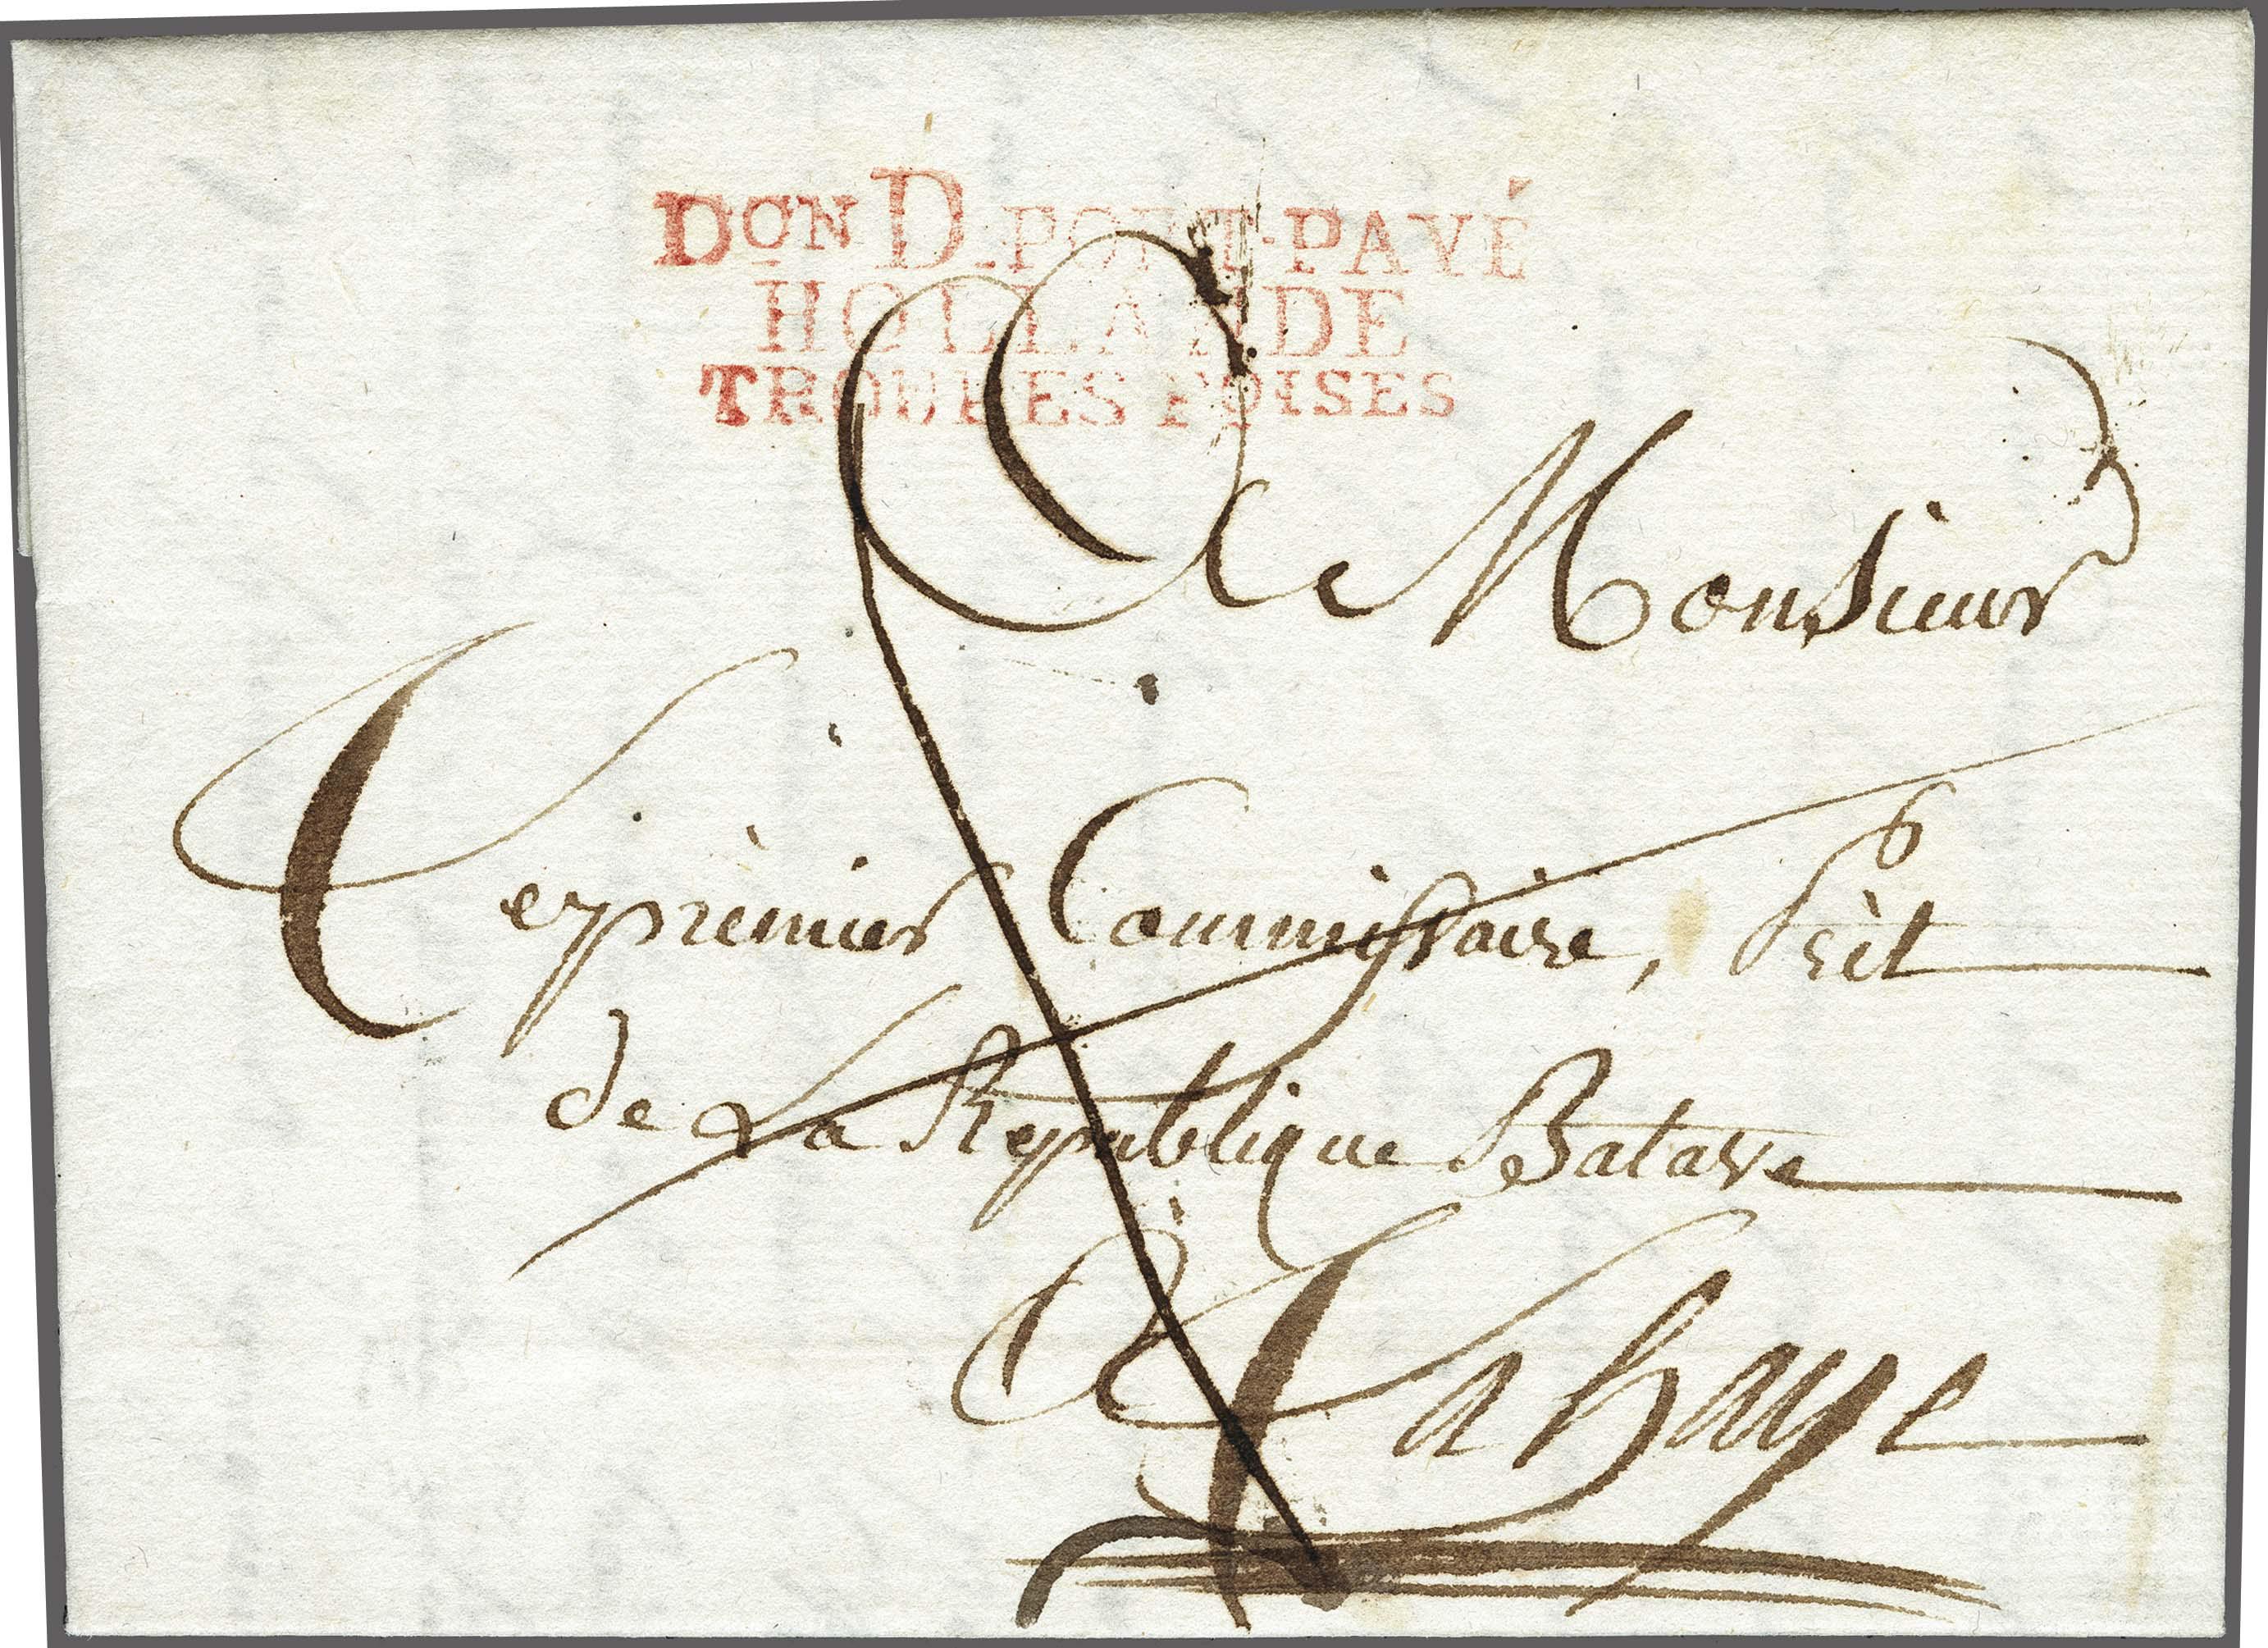 DON D. PORT-PAYÉ
HOLLANDE
TROUPES FOISES
A Monsieur
Le premier Commissaire,
de La Republique Batave
A La haye